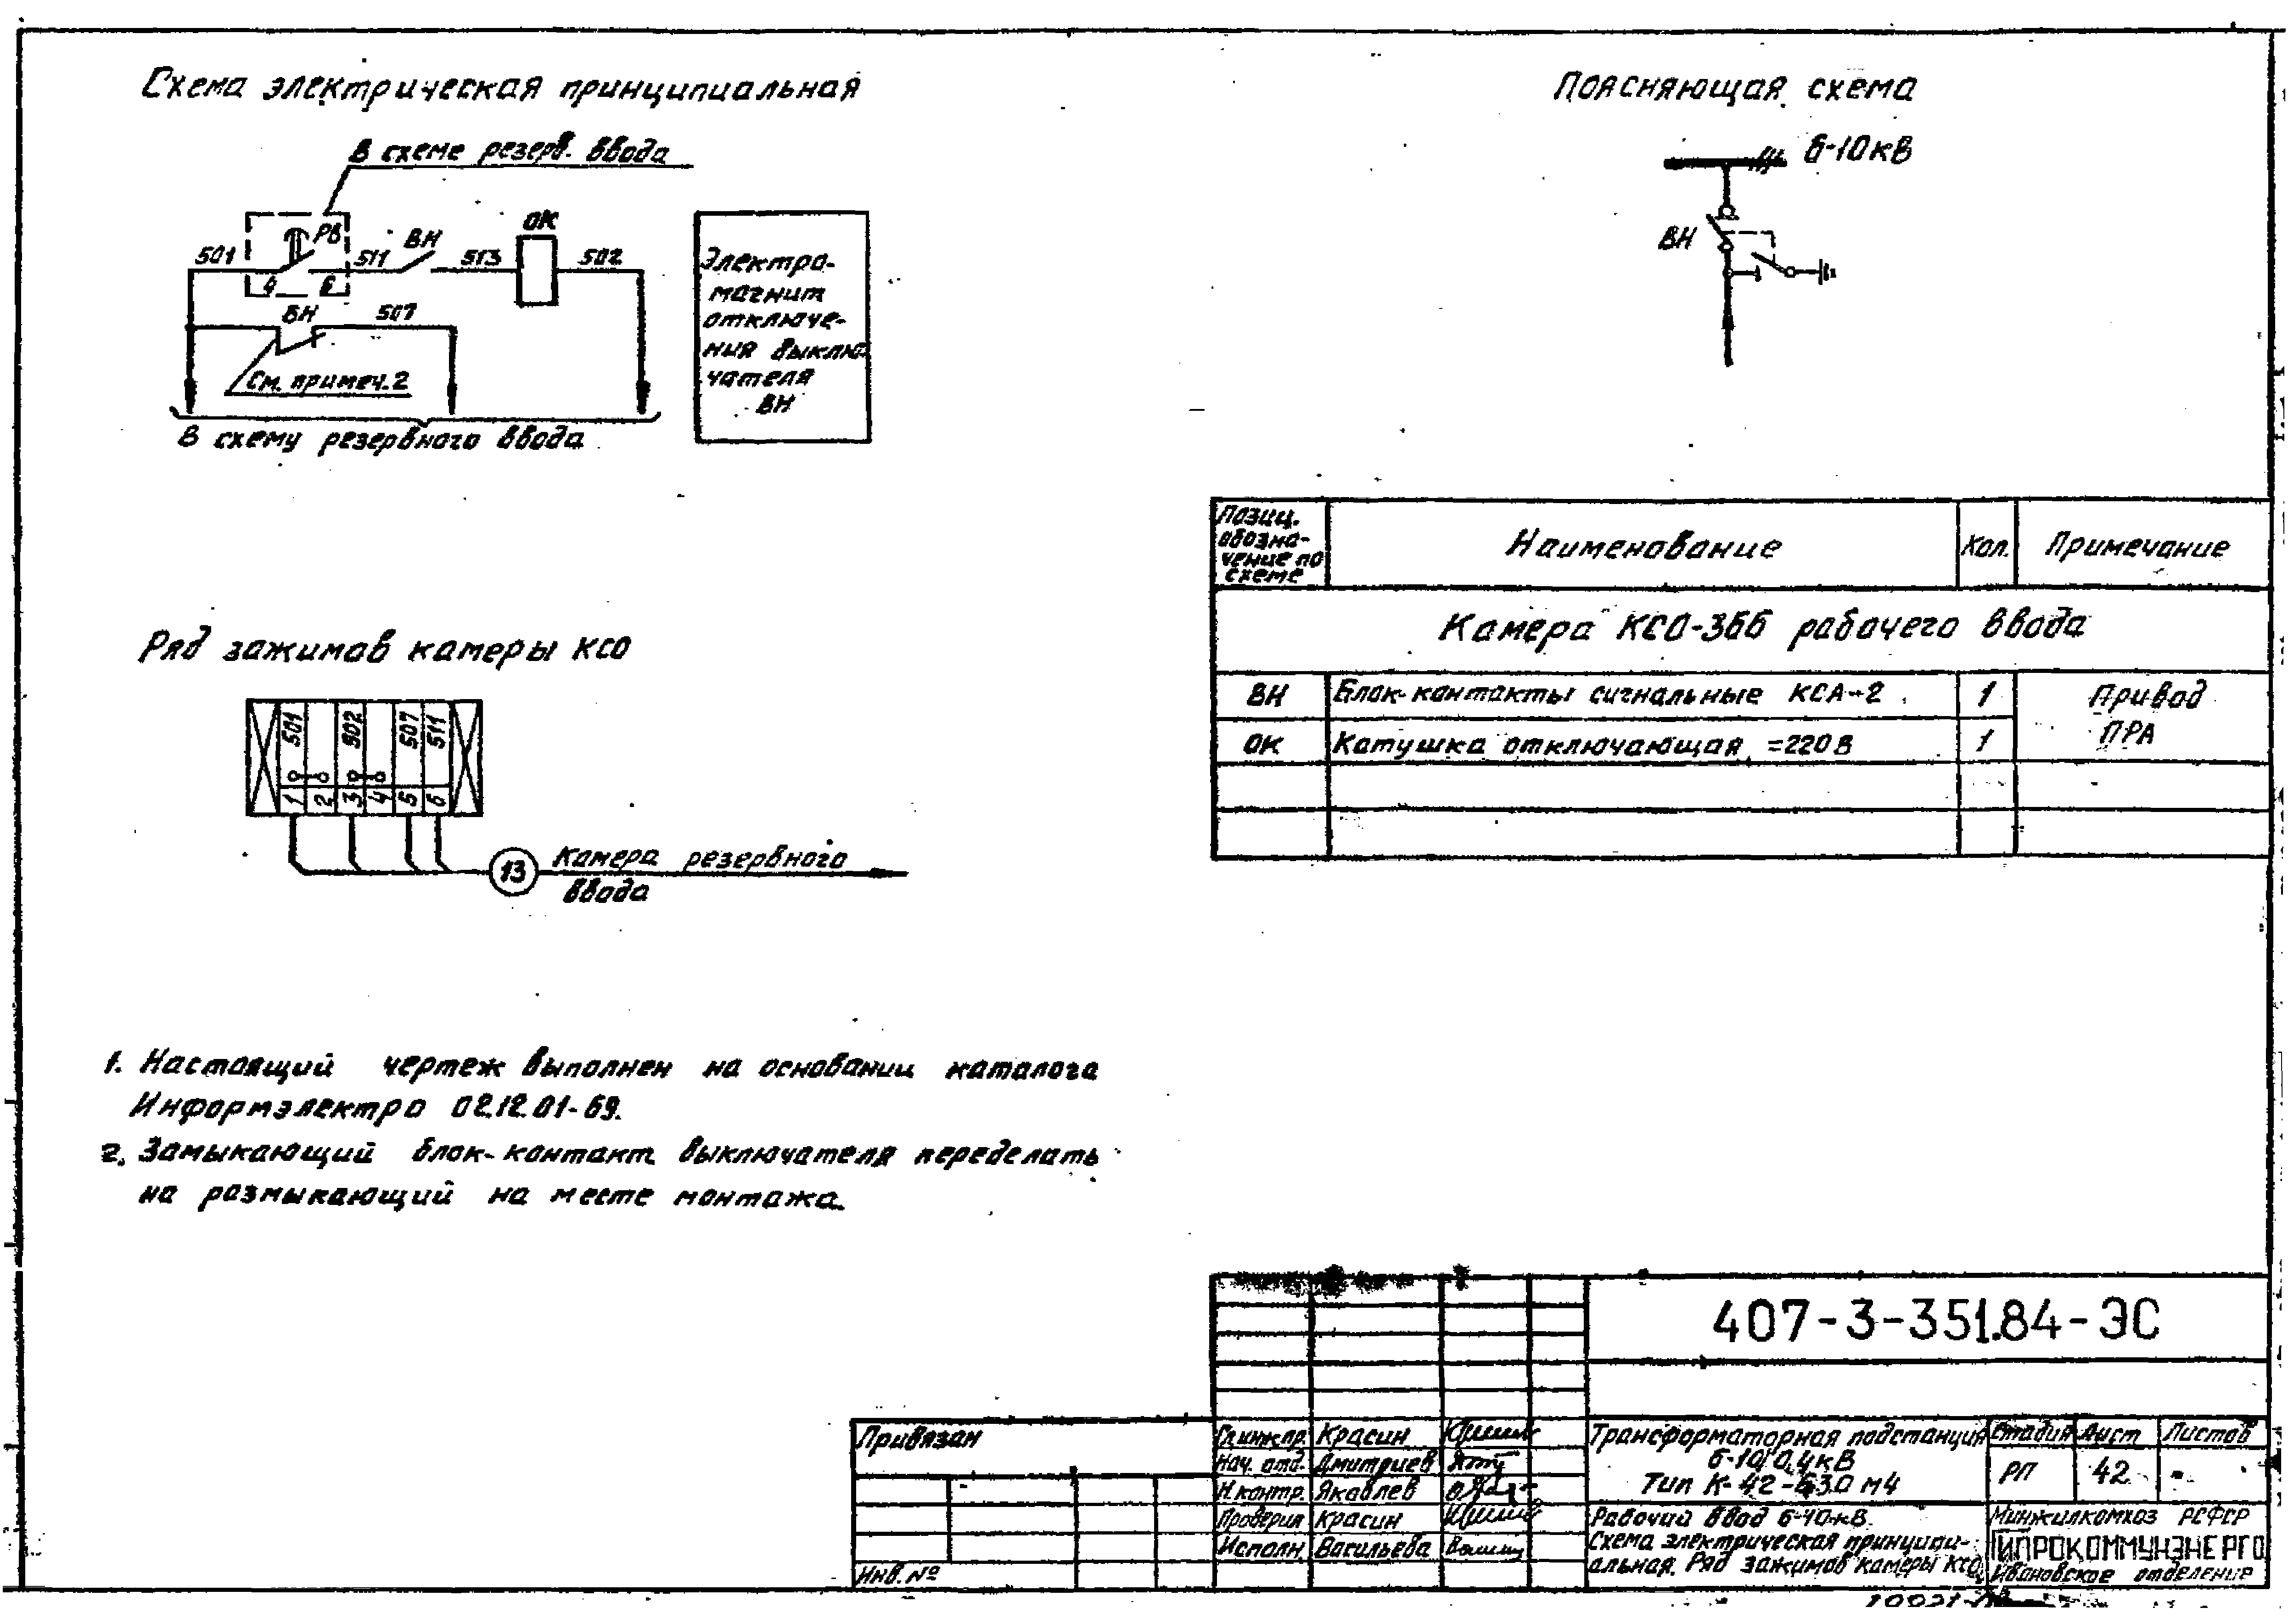 Схема электрическая принципиальная
В схеме резерв. ввода
501
РВ
4 6
511
ВН
513
ОК
502
ВН
507
См. примеч. 2
В схему резервного ввода
Электро-
магнит
отключе-
ния выклю-
чателя
ВН
Поясняющая схема
6-10кВ
ВН
Позиц.
обозна-
чение по
схеме
Наименование
Кол.
Примечание
Камера КСО-366 рабочего ввода
ВН Блок-контакты сигнальные КСА-2 1 Привод
ПРА
ОК Катушка отключающая =220В 1
Ряд зажимов камеры КСО
501 502 507 511
1 2 3 4 5 6
13
Камера резервного
ввода
1. Настоящий чертеж выполнен на основании каталога
Информэлектро 02.12.01-69.
2. Замыкающий блок-контакт выключателя переделать
на размыкающий на месте монтажа.
407-3-351.84-ЭС
Привязан
Инв. №
Гл.инж.пр. Красин
Нач. отд. Дмитриев
Н.контр. Яковлев
Проверил Красин
Исполн. Васильева
Трансформаторная подстанция
6-10/0,4кВ
Тип К-42-630 м4
Стадия Лист Листов
РП 42 -
Рабочий ввод 6-10кВ.
Схема электрическая принципи-
альная. Ряд зажимов камеры КСО.
Минжилкомхоз РСФСР
ГИПРОКОММУНЭНЕРГО
Ивановское отделение